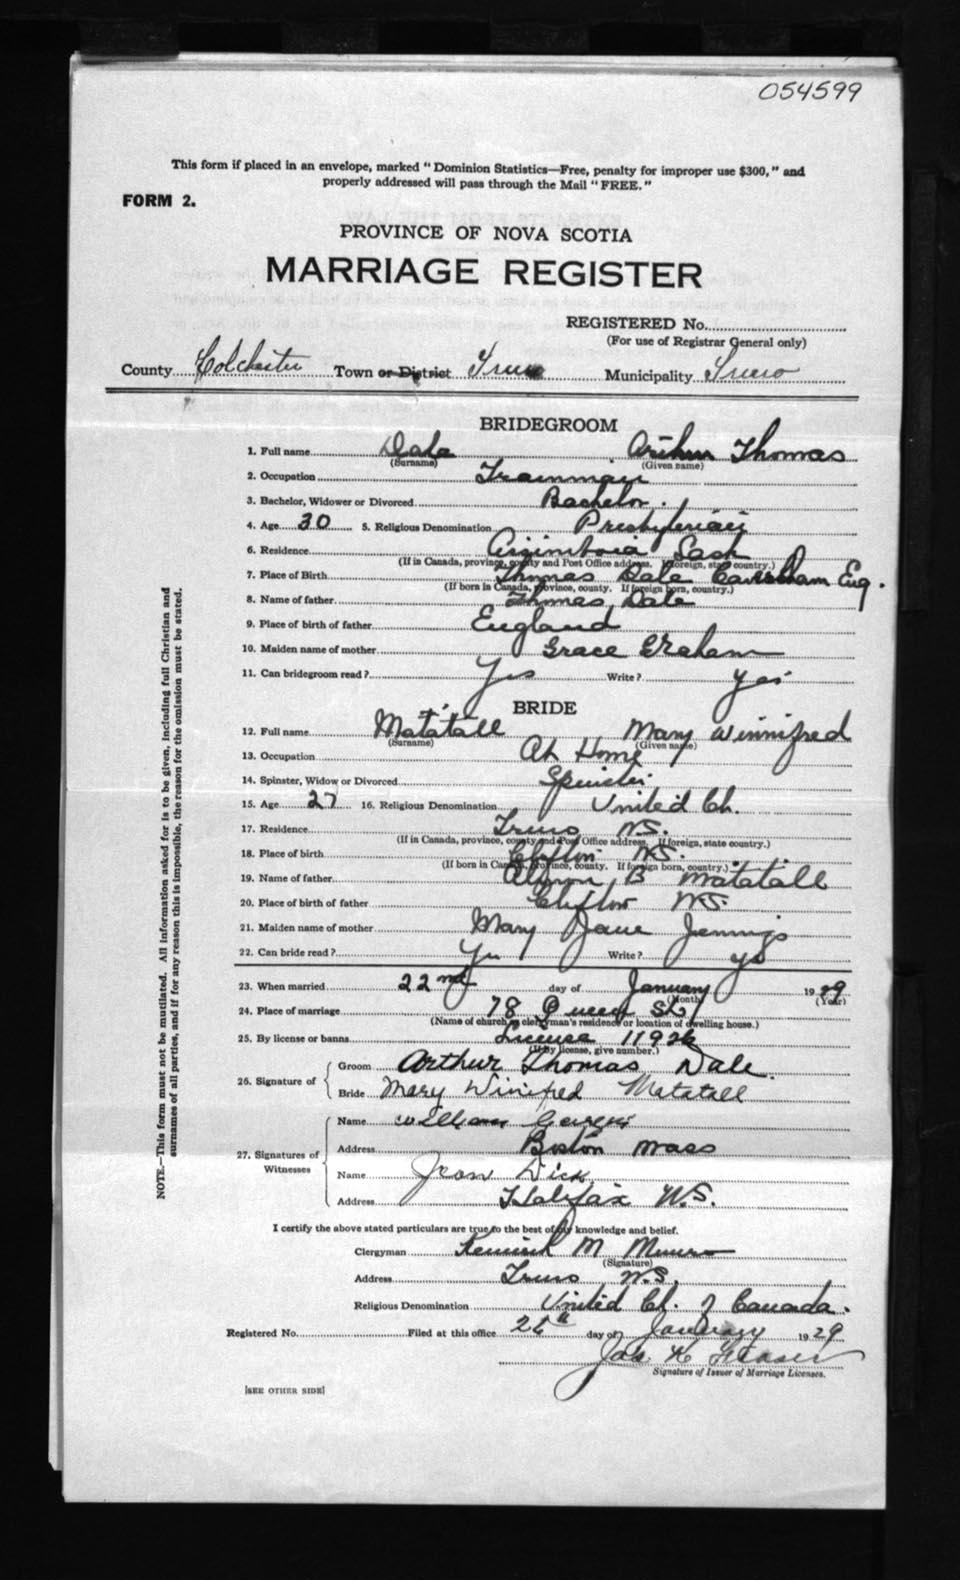 054599
This form if placed in an envelope, marked "Dominion Statistics—Free, penalty for improper use $300," and
properly addressed will pass through the Mail "FREE."
FORM 2.
PROVINCE OF NOVA SCOTIA
MARRIAGE REGISTER
REGISTERED No.
(For use of Registrar General only)
County Colchester Town or District Truro Municipality Truro
BRIDEGROOM
1. Full name Dale Arthur Thomas
(Surname) (Given name)
2. Occupation Trainman
3. Bachelor, Widower or Divorced Bachelor.
4. Age 30 5. Religious Denomination Presbyterian
6. Residence Assiniboia Sask
(If in Canada, province, county and Post Office address. If foreign, state country.)
7. Place of Birth Thomas Dale Eng.
(If born in Canada, province, county. If foreign born, country.)
8. Name of father Thomas Dale
9. Place of birth of father England
10. Maiden name of mother Grace Graham
11. Can bridegroom read? Yes Write? Yes
BRIDE
12. Full name Matatall Mary Winnifred
(Surname) (Given name)
13. Occupation At Home
14. Spinster, Widow or Divorced Spinster
15. Age 27 16. Religious Denomination United Ch.
17. Residence Truro N.S.
(If in Canada, province, county and Post Office address. If foreign, state country.)
18. Place of birth Clifton N.S.
(If born in Canada, province, county. If foreign born, country.)
19. Name of father B Matatall
20. Place of birth of father Clifton N.S.
21. Maiden name of mother Mary Jane Jennings
22. Can bride read? Yes Write? yes
23. When married 22nd day of January 1929
(Month) (Year)
24. Place of marriage 78 Queen St
(Name of church or clergyman's residence or location of dwelling house.)
25. By license or banns License 11926
(If by license, give number.)
26. Signature of Groom Arthur Thomas Dale.
Bride Mary Winifred Matatall
27. Signatures of Witnesses Name William
Address Boston Mass
Name Jean Dick
Address Halifax N.S.
I certify the above stated particulars are true to the best of my knowledge and belief.
Clergyman M Munro
(Signature)
Address Truro N.S.
Religious Denomination United Ch. of Canada.
Registered No. Filed at this office day of January 1929
Jas. K Fraser
Signature of Issuer of Marriage Licenses.
[SEE OTHER SIDE]
NOTE.—This form must not be mutilated. All information asked for is to be given, including full Christian and
surnames of all parties, and if for any reason this is impossible, the reason for the omission must be stated.